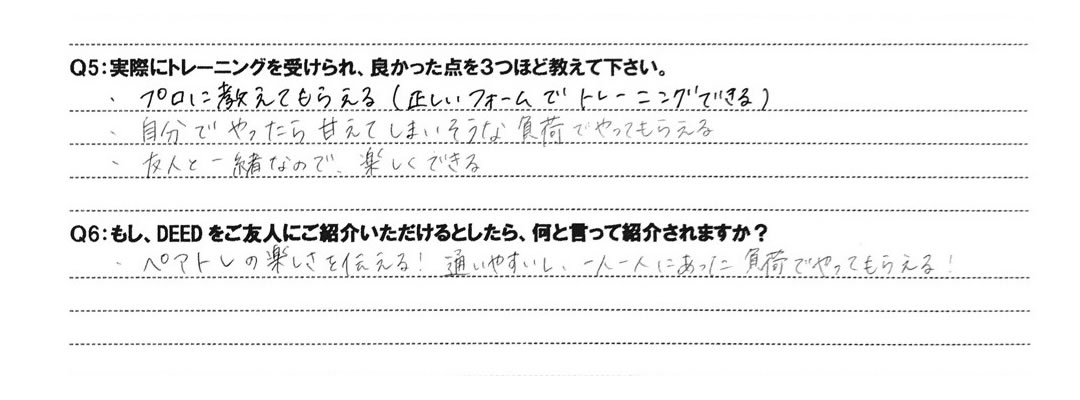 Q5:実際にトレーニングを受けられ、良かった点を3つほど教えて下さい。
・ プロに教えてもらえる(正しいフォームでトレーニングできる)
・ 自分でやったら甘えてしまいそうな負荷でやってもらえる
・ 友人と一緒なので、楽しくできる
Q6:もし、DEEDをご友人にご紹介いただけるとしたら、何と言って紹介されますか?
・ ペアトレの楽しさを伝える! 通いやすいし、一人一人にあった負荷でやってもらえる!